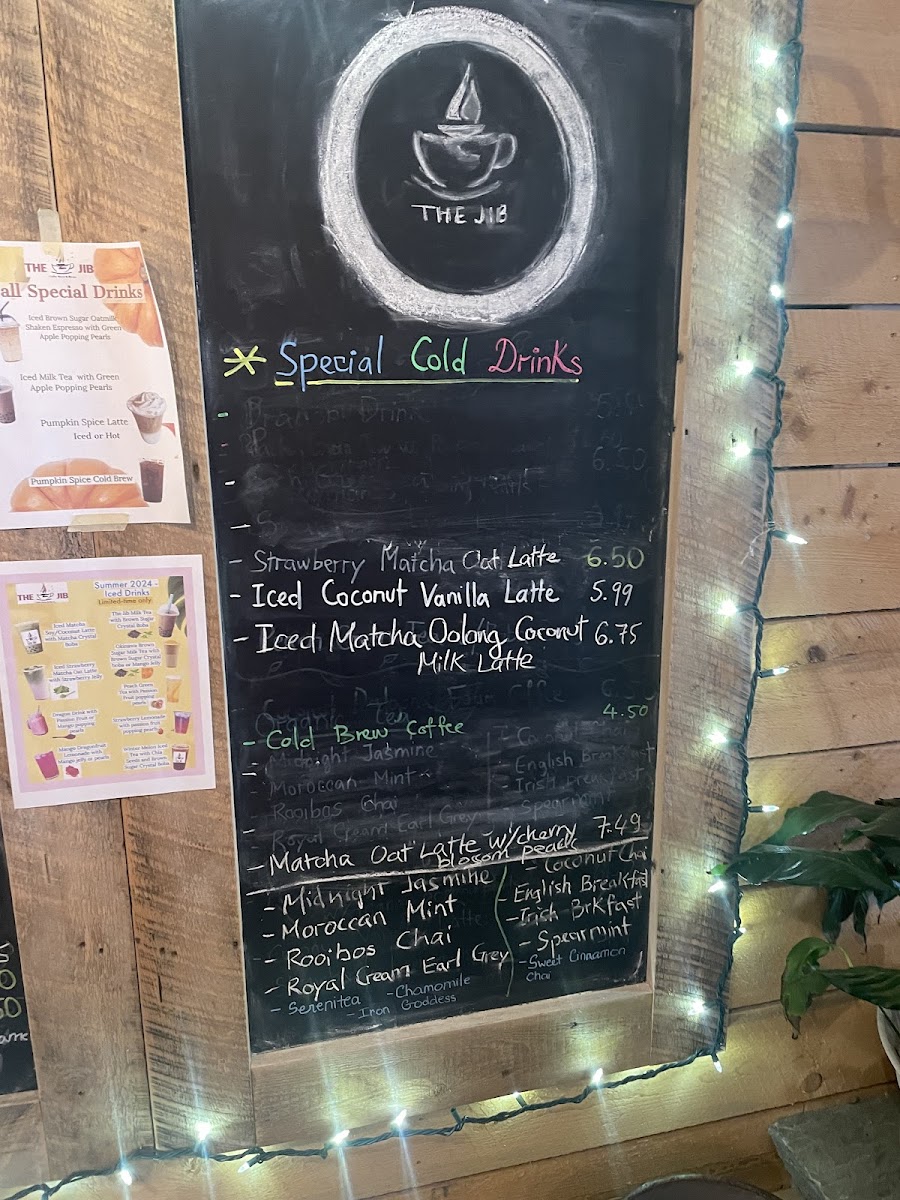 THE JIB
* Special Cold Drinks
- Strawberry Matcha Oat Latte 6.50
- Iced Coconut Vanilla Latte 5.99
- Iced Matcha Oolong Coconut 6.75
Milk Latte
- Cold Brew Coffee 4.50
Midnight Jasmine
Moroccan Mint
Rooibos Chai
Royal Cream Earl Grey
English breakfast
Irish breakfast
Spearmint
- Matcha Oat Latte w/cherry 7.49
blossom pearls
- Midnight Jasmine
- Moroccan Mint
- Rooibos Chai
- Royal Cream Earl Grey
- Serenitea - Chamomile
- Iron Goddess
- Coconut Chai
- English Breakfast
- Irish Brkfast
- Spearmint
- Sweet Cinnamon
Chai
THE JIB
all Special Drinks
Iced Brown Sugar Oatmilk
Shaken Espresso with Green
Apple Popping Pearls
Iced Milk Tea with Green
Apple Popping Pearls
Pumpkin Spice Latte
Iced or Hot
Pumpkin Spice Cold Brew
THE JIB
Summer 2024 -
Iced Drinks
Limited-time only
Iced Matcha
Soy/Coconut Latte
with Matcha Crystal
Boba
Iced Strawberry
Matcha Oat Latte
with Strawberry Jelly
Dragon Drink with
Passion Fruit or
Mango popping
pearls
Mango Dragonfruit
Lemonade with
Mango jelly or pearls
The Jib Milk Tea
with Brown Sugar
Crystal Boba
Okinawa Brown
Sugar Milk Tea with
Brown Sugar Crystal
Boba or Mango Jelly
Peach Green
Tea with Passion
Fruit popping
pearls
Strawberry Lemonade
with passion fruit
popping pearls
Winter Melon Iced
Tea with Chia
Seeds and Brown
Sugar Crystal Boba